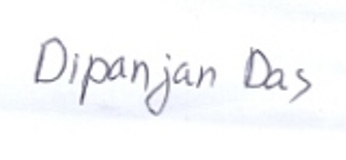 Dipanjan Das